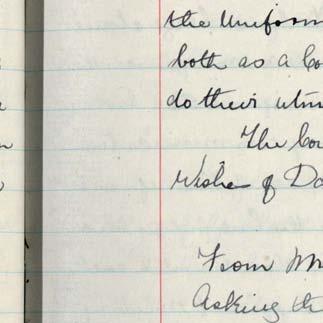 the Uniform
both as a Co
do their utm
The Cou
Wishes of Do
From M
Asking th